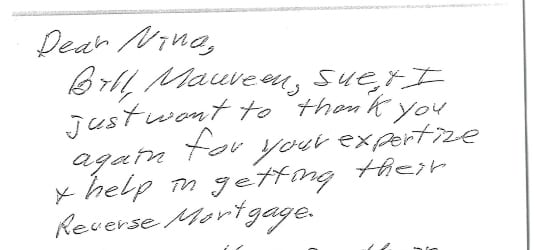 Dear Nina,
Bill, Maureen, Sue, & I
just want to thank you
again for your expertize
& help in getting their
Reverse Mortgage.